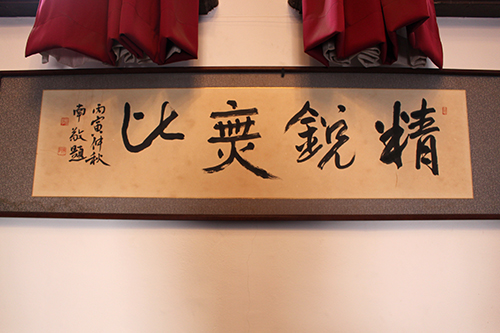 精銳無比
丙寅仲秋
南敬題